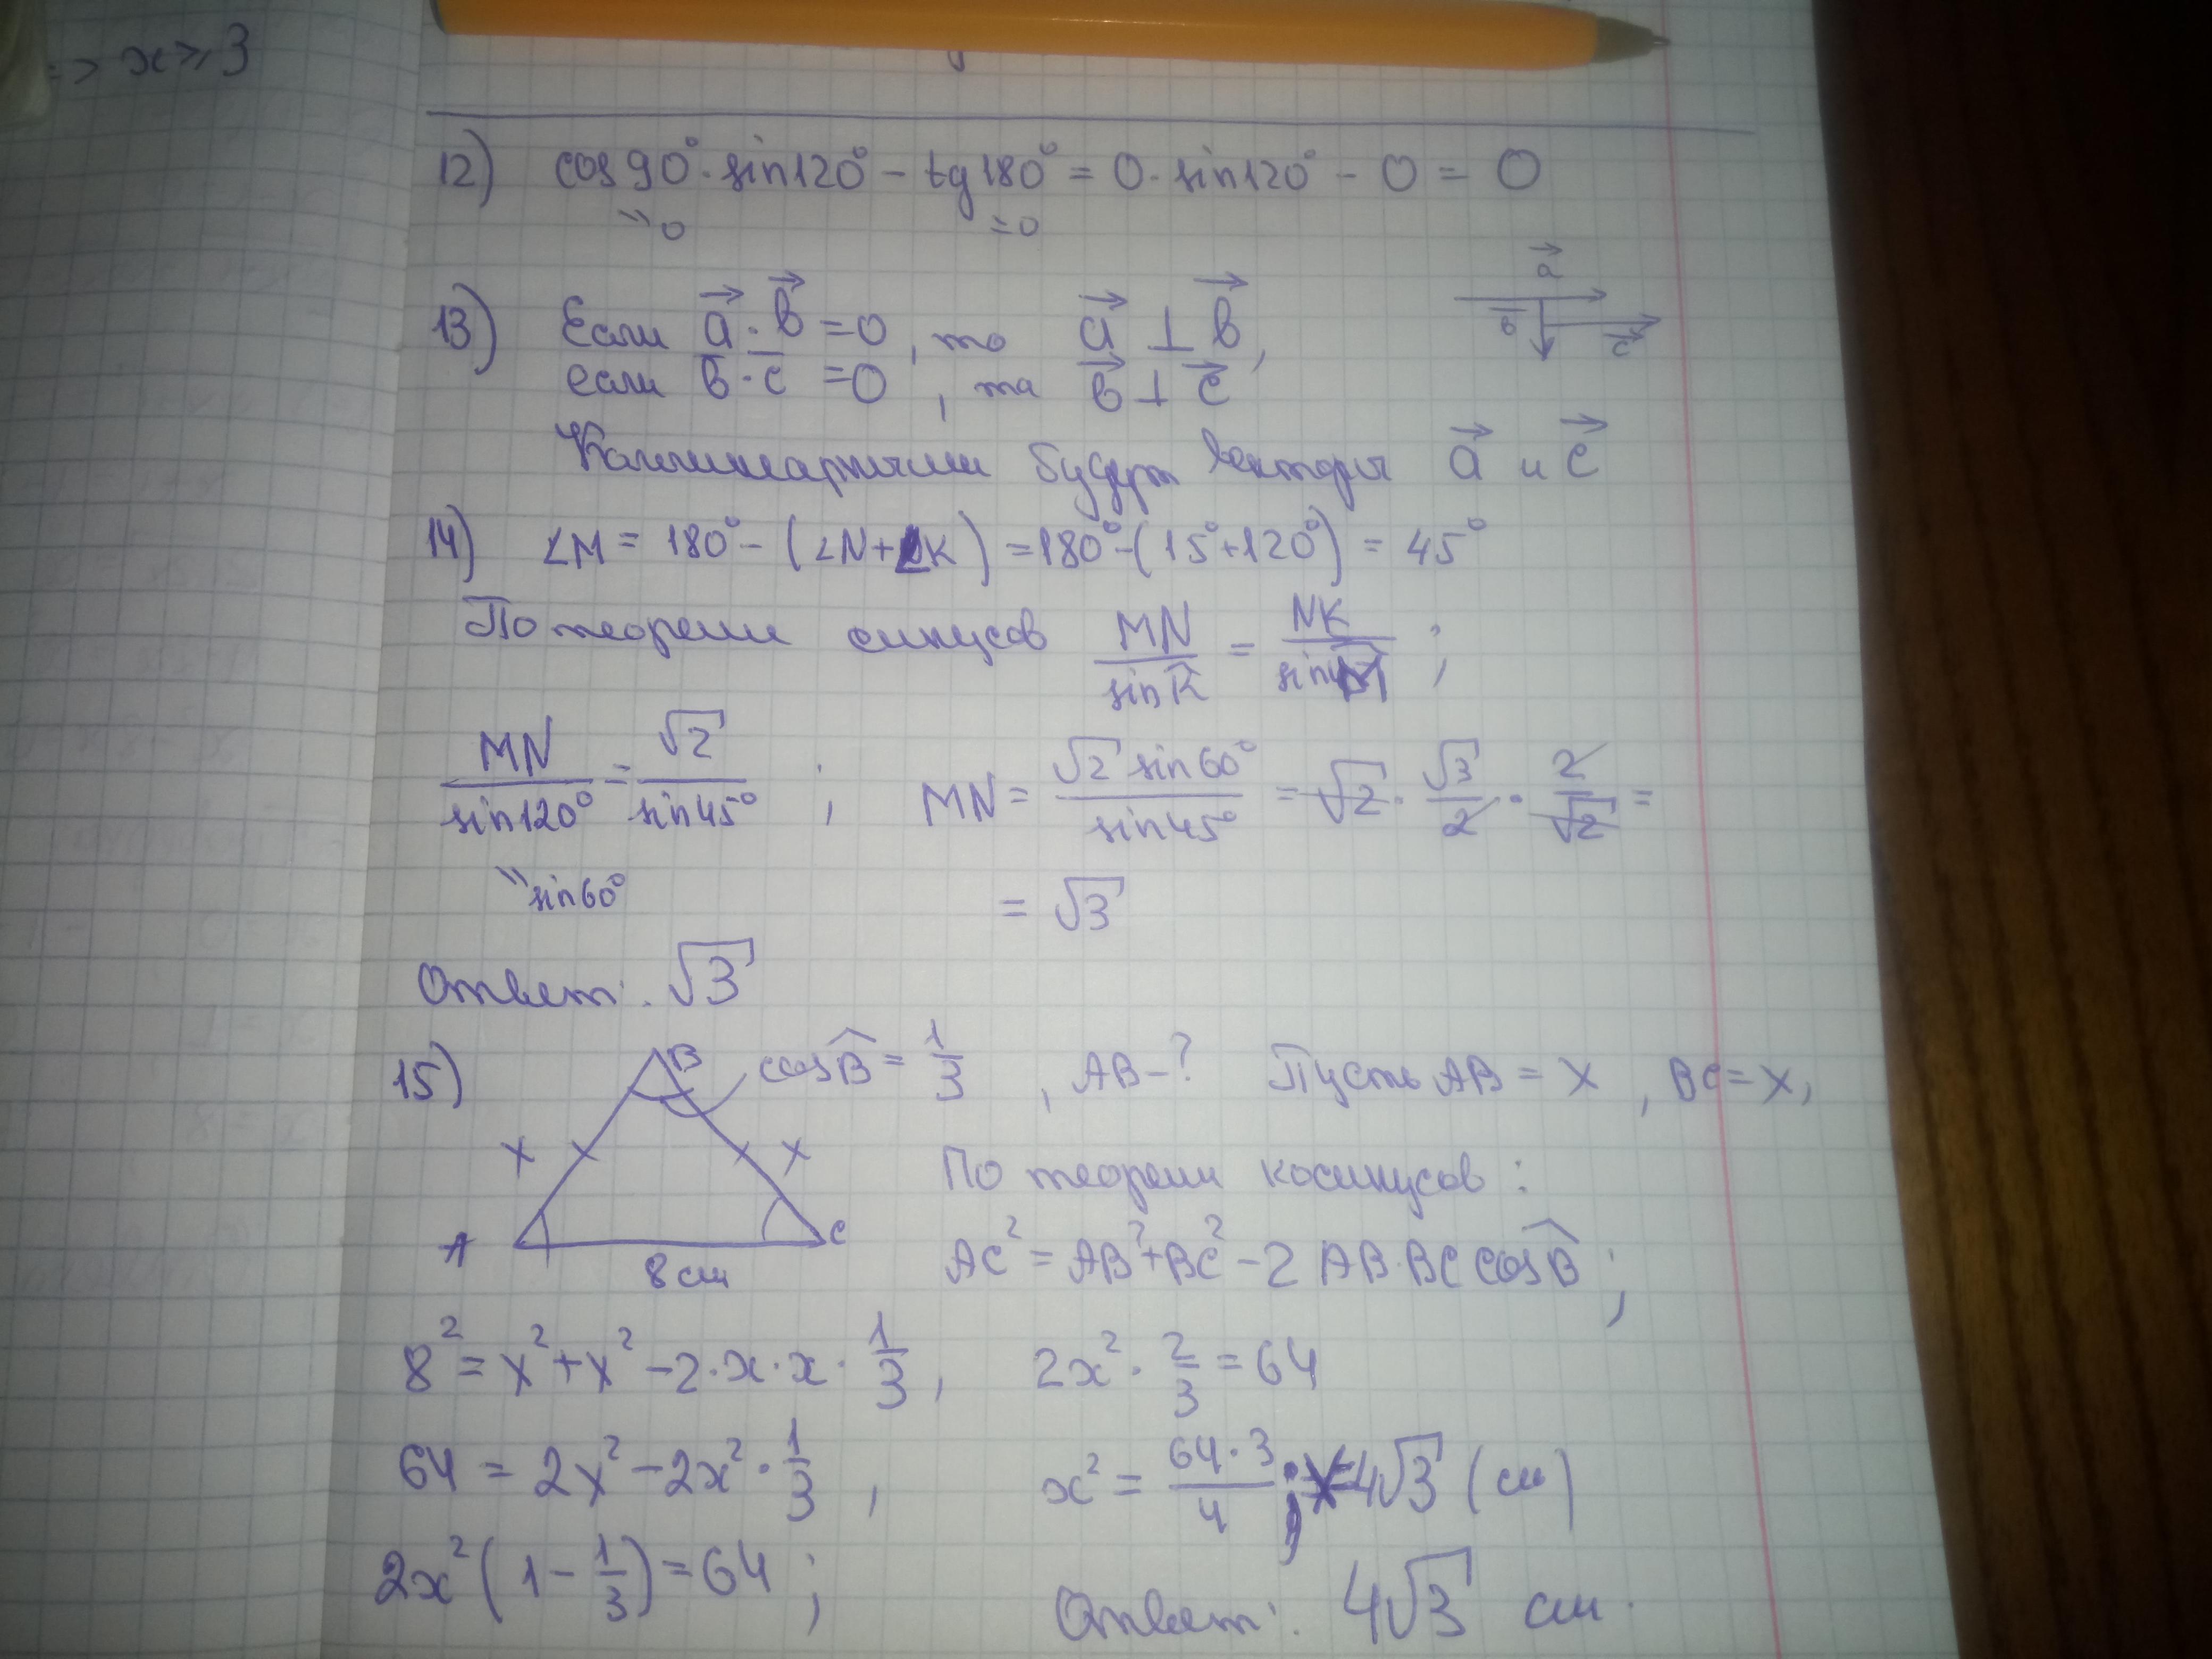 => x ≥ 3
12) cos90°·sin120° - tg180° = 0·sin120° - 0 = 0
=0 =0
13) Если a⃗·b⃗ =0, то a⃗ ⊥ b⃗,
a⃗ b⃗ c⃗
если b·c =0, то b⃗ ⊥ c⃗
Коллинеарными будут векторы a⃗ и c⃗
14) ∠M = 180° - (∠N+∠K) = 180° - (15°+120°) = 45°
По теореме синусов MN/sinK̂ = NK/sinM̂ ;
MN/sin120° = √2/sin45° ; MN = √2 sin60°/sin45° = √2 · √3/2 · 2/√2 =
=sin60° = √3
Ответ: √3
15) B cosB̂ = 1/3, AB-? Пусть AB = x, BC = x,
x x По теореме косинусов:
A C AC² = AB²+BC²-2 AB·BC cosB̂ ;
8 см
8² = x²+x² -2·x·x·1/3, 2x²·2/3 = 64
64 = 2x² - 2x²·1/3, x² = 64·3/4 ; x=4√3 (см)
2x²(1 - 1/3) = 64 ; Ответ: 4√3 см.